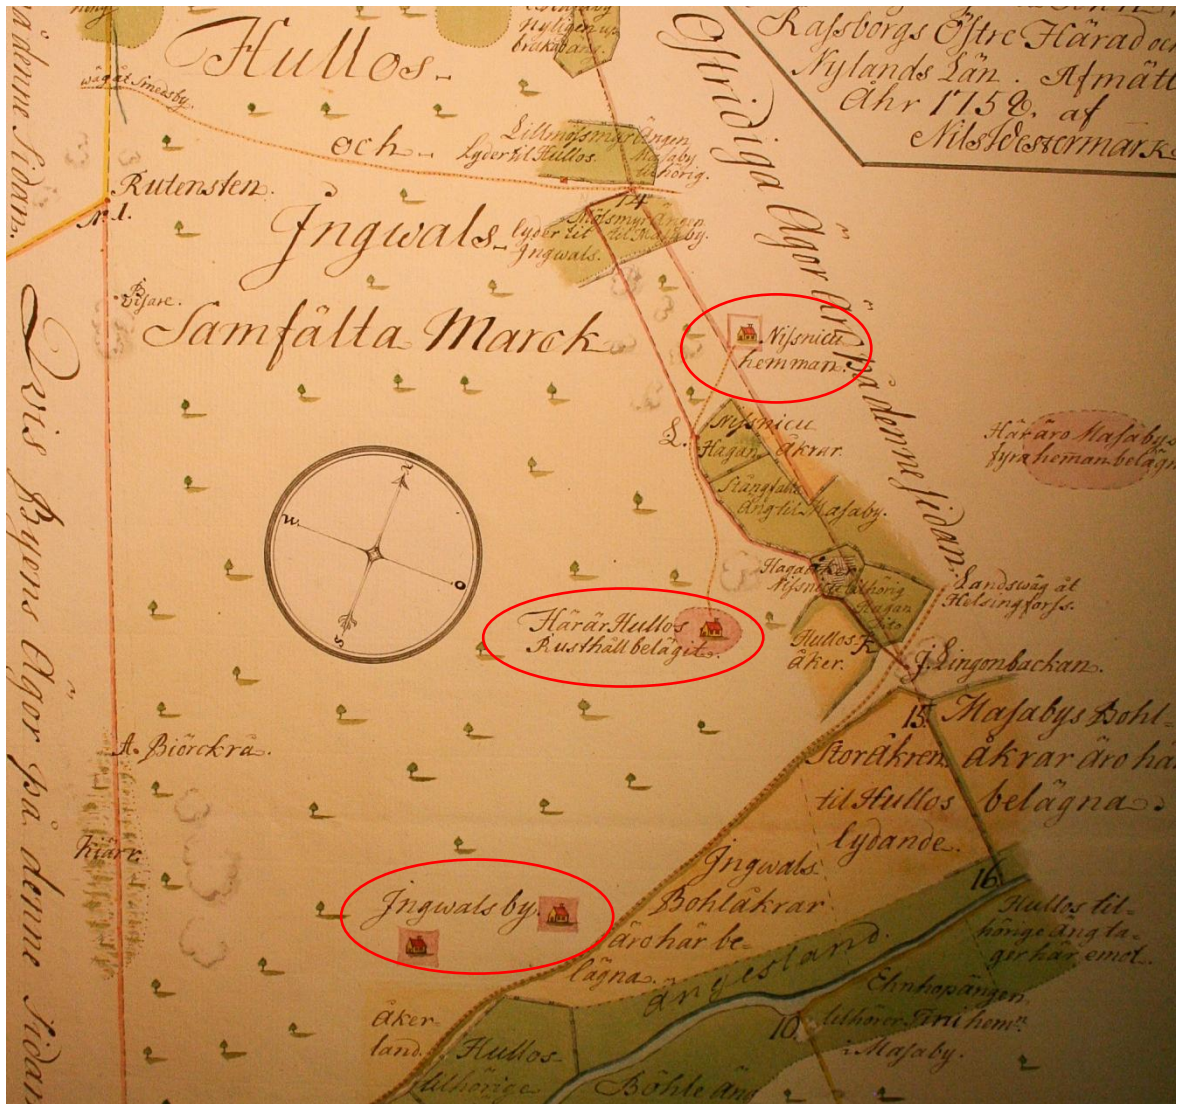 Rassborgs Östre Härad och
Nylands Län. Afmätt
Åhr 1758. af
Nils Westermark
Hullos-
och-
Ingwals-
Samfälta Marck
wäg åt Smedsby.
Rutensten.
N. 1.
Visare.
Lillmössmyrängen
Lyder til Hullos. Masaby
tilhörig.
14
Mössmyrängen
lyder til til Masaby.
Ingwals.
Ostridiga Ägor är på denne sidan.
Nissnicu
hemman.
L.
Nissnicu
Hagan Åkrar.
Stångfalla
Äng til Masaby.
Här äro Masabys
fyra heman belägn
Hagaåker
Nissnicu tilhörig
Hagan
Landswäg åt
Helsingforss.
Här är Hullos
Rusthåll belägit.
Hullos-
åker.
K
J. Lingonbackan.
15. Masabys Bohl-
åkrar äro hä
belägna.
Storåkren
til Hullos
lydande.
A. Biörckrä.
Kiärr.
Ingwals by.
Ingwals
Bohlåkrar
äro här be-
lägna.
16.
Hullos til-
hörige äng ta-
ger här emot.
ängesland.
Ehnhopängen.
tilhörer Tini hemn
i Masaby.
10.
åker-
land.
Hullos-
tilhörige
Böhle äng
Byens Ägor på denne Sidan
ådenne Sidan.